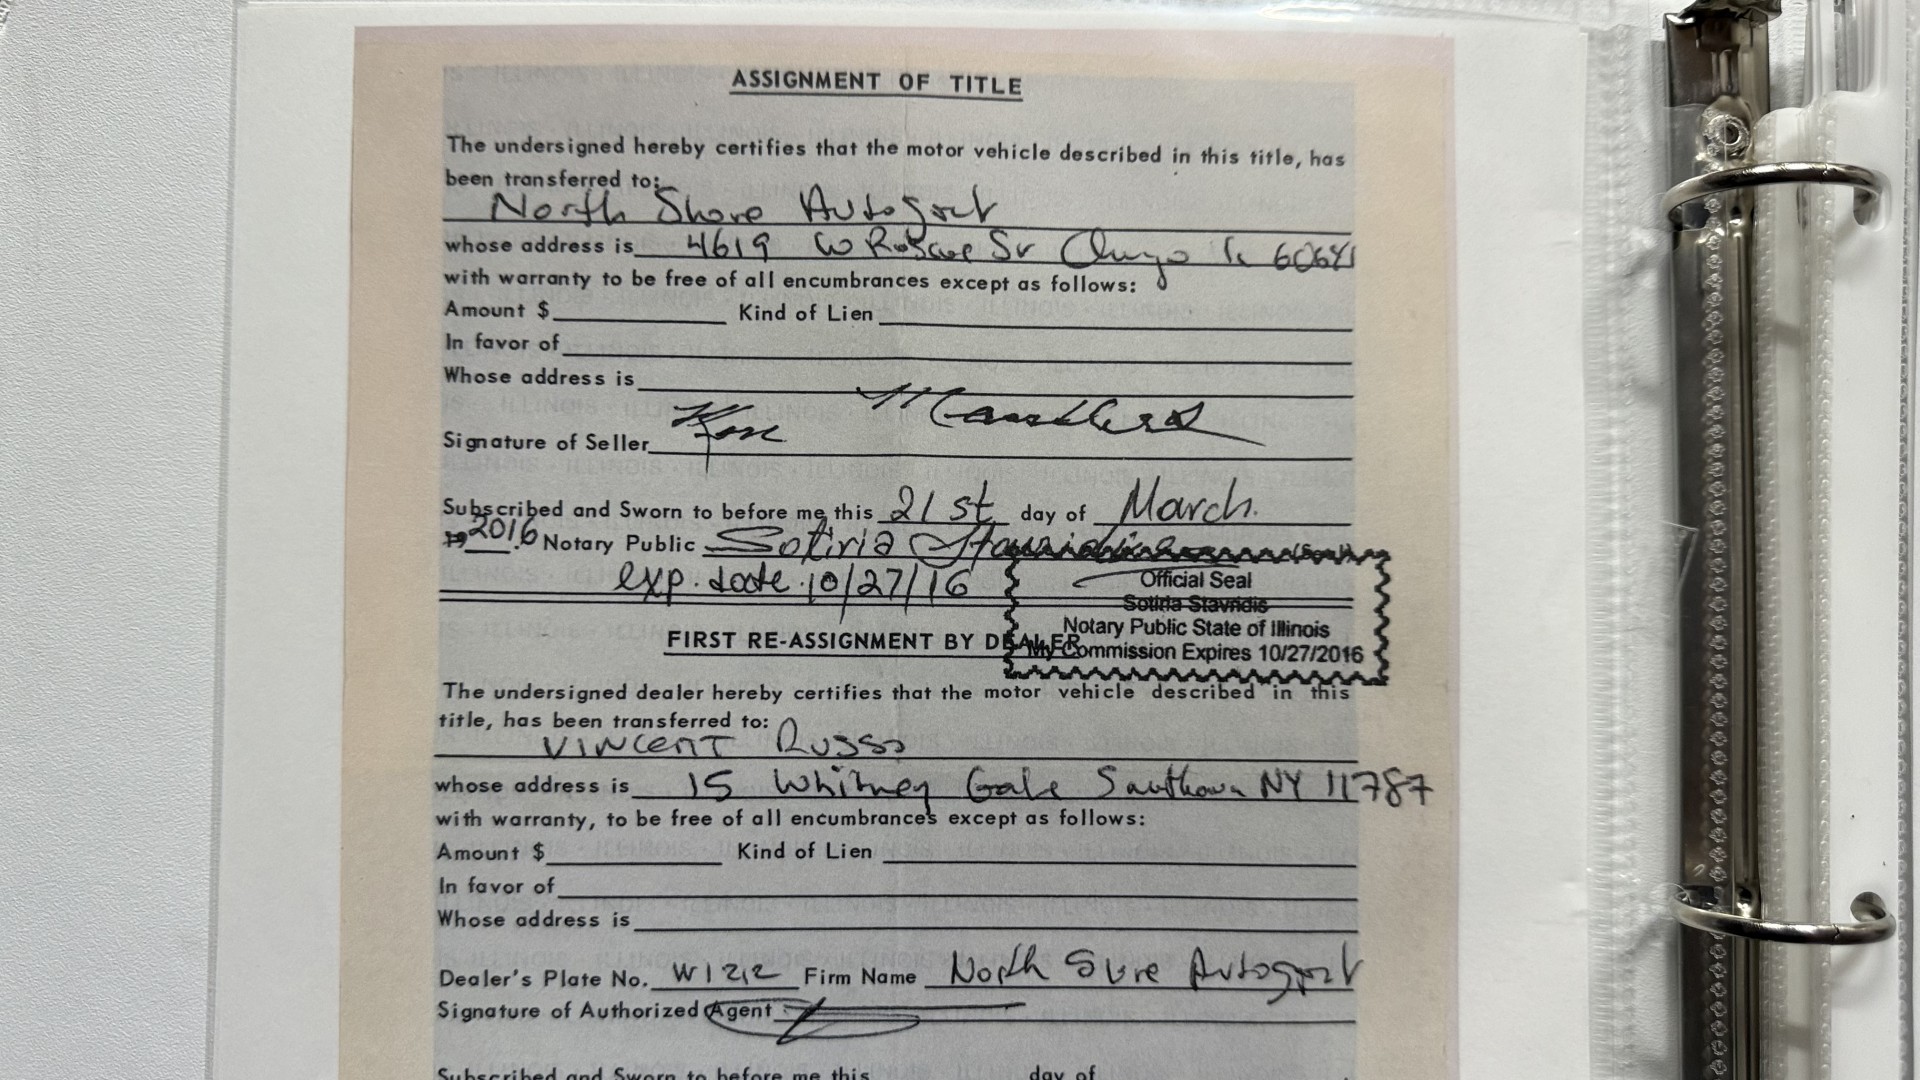 ASSIGNMENT OF TITLE
The undersigned hereby certifies that the motor vehicle described in this title, has
been transferred to:
North Shore
whose address is 4619 W Roscoe 60641
with warranty to be free of all encumbrances except as follows:
Amount $ Kind of Lien
In favor of
Whose address is
Signature of Seller
Subscribed and Sworn to before me this 21st day of March.
19 2016 Notary Public Sotiria (Seal)
exp. date 10/27/16
Official Seal
Sotiria Stavridis
Notary Public State of Illinois
My Commission Expires 10/27/2016
FIRST RE-ASSIGNMENT BY DEALER
The undersigned dealer hereby certifies that the motor vehicle described in this
title, has been transferred to:
VINCENT Russo
whose address is 15 Whitney NY 11787
with warranty, to be free of all encumbrances except as follows:
Amount $ Kind of Lien
In favor of
Whose address is
Dealer's Plate No. W1212 Firm Name North
Signature of Authorized Agent
Subscribed and Sworn to before me this day of